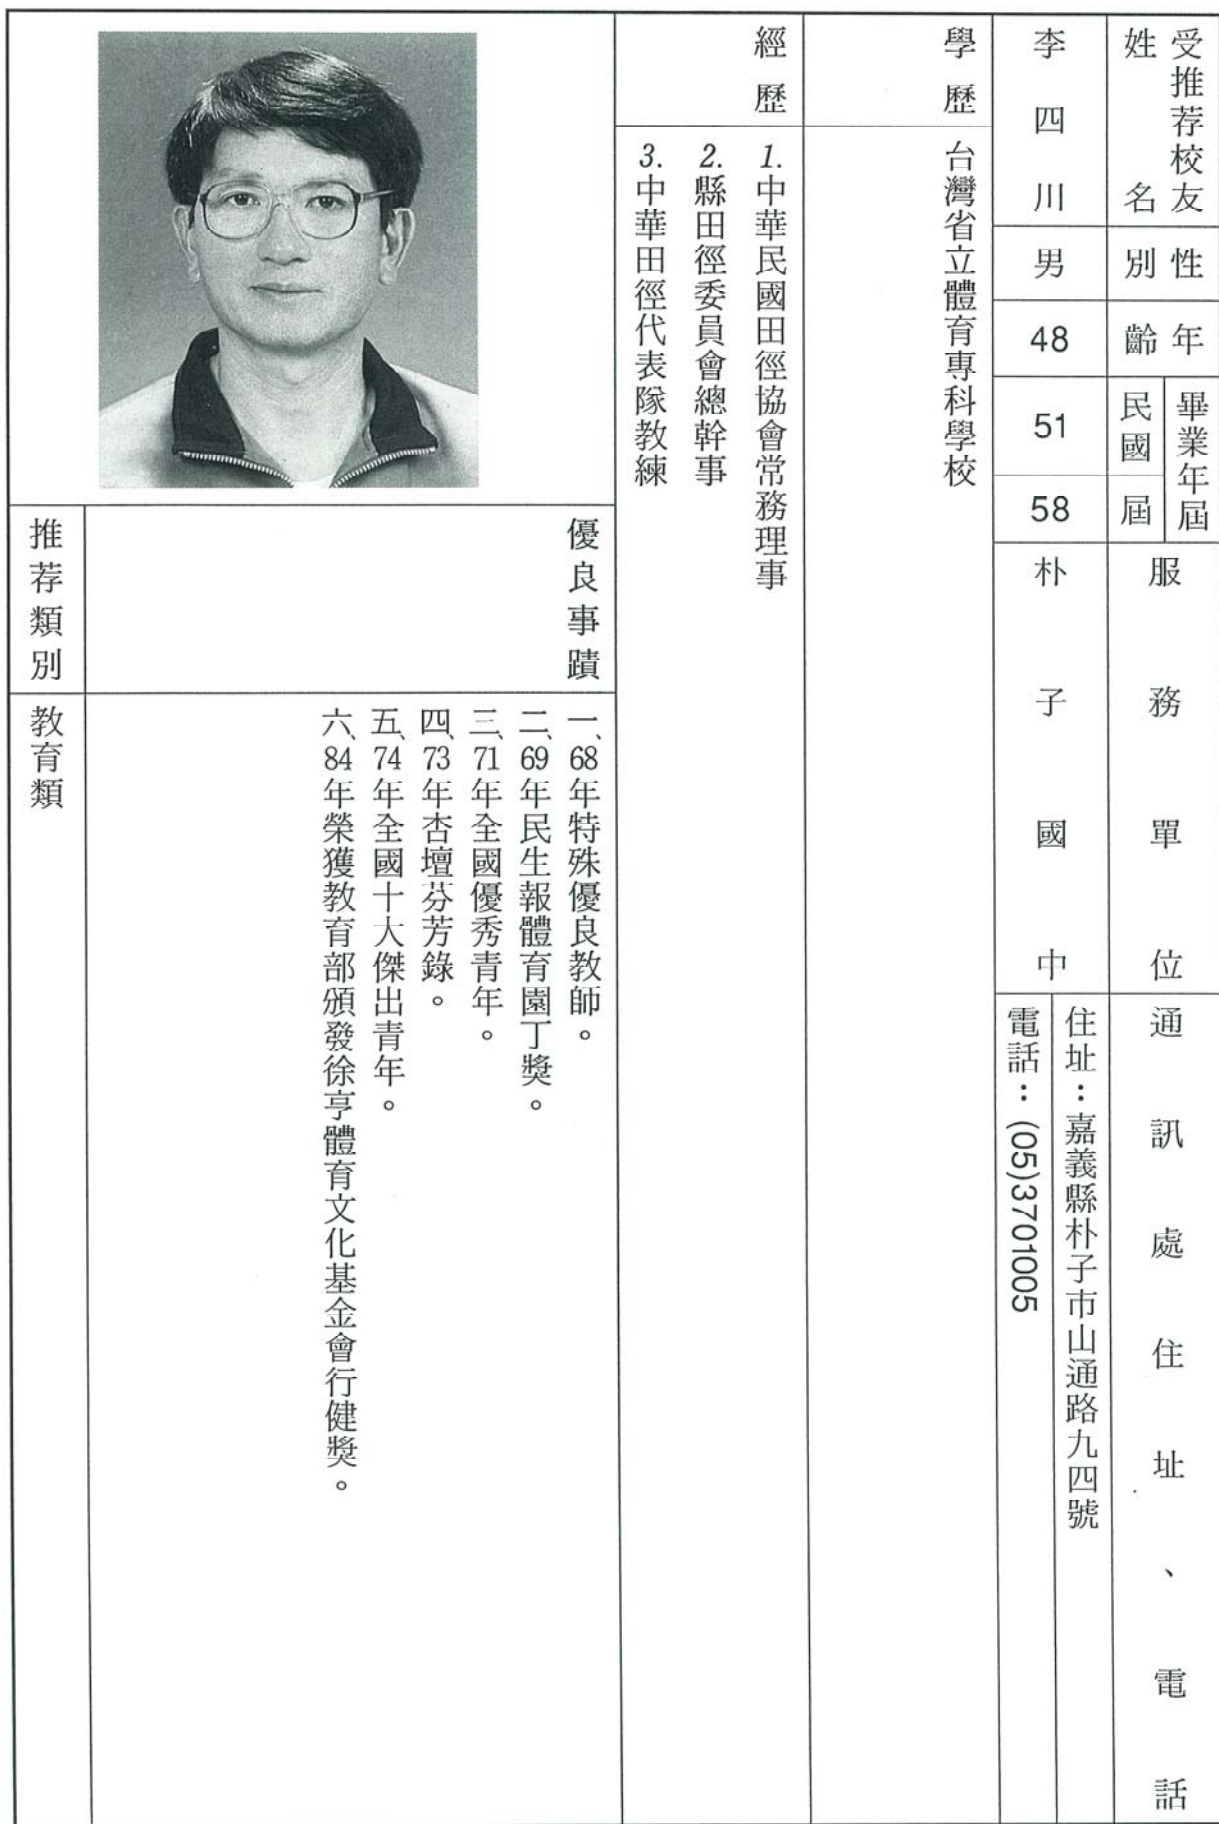 受推荐校友
姓名
性別
年齡
畢業年屆
民國
屆
服務單位
通訊處住址、電話
李四川
男
48
51
58
朴子國中
住址：嘉義縣朴子市山通路九四號
電話：(05)3701005
學歷
台灣省立體育專科學校
經歷
1.中華民國田徑協會常務理事
2.縣田徑委員會總幹事
3.中華田徑代表隊教練
優良事蹟
一、68年特殊優良教師。
二、69年民生報體育園丁獎。
三、71年全國優秀青年。
四、73年杏壇芬芳錄。
五、74年全國十大傑出青年。
六、84年榮獲教育部頒發徐亨體育文化基金會行健獎。
推荐類別
教育類